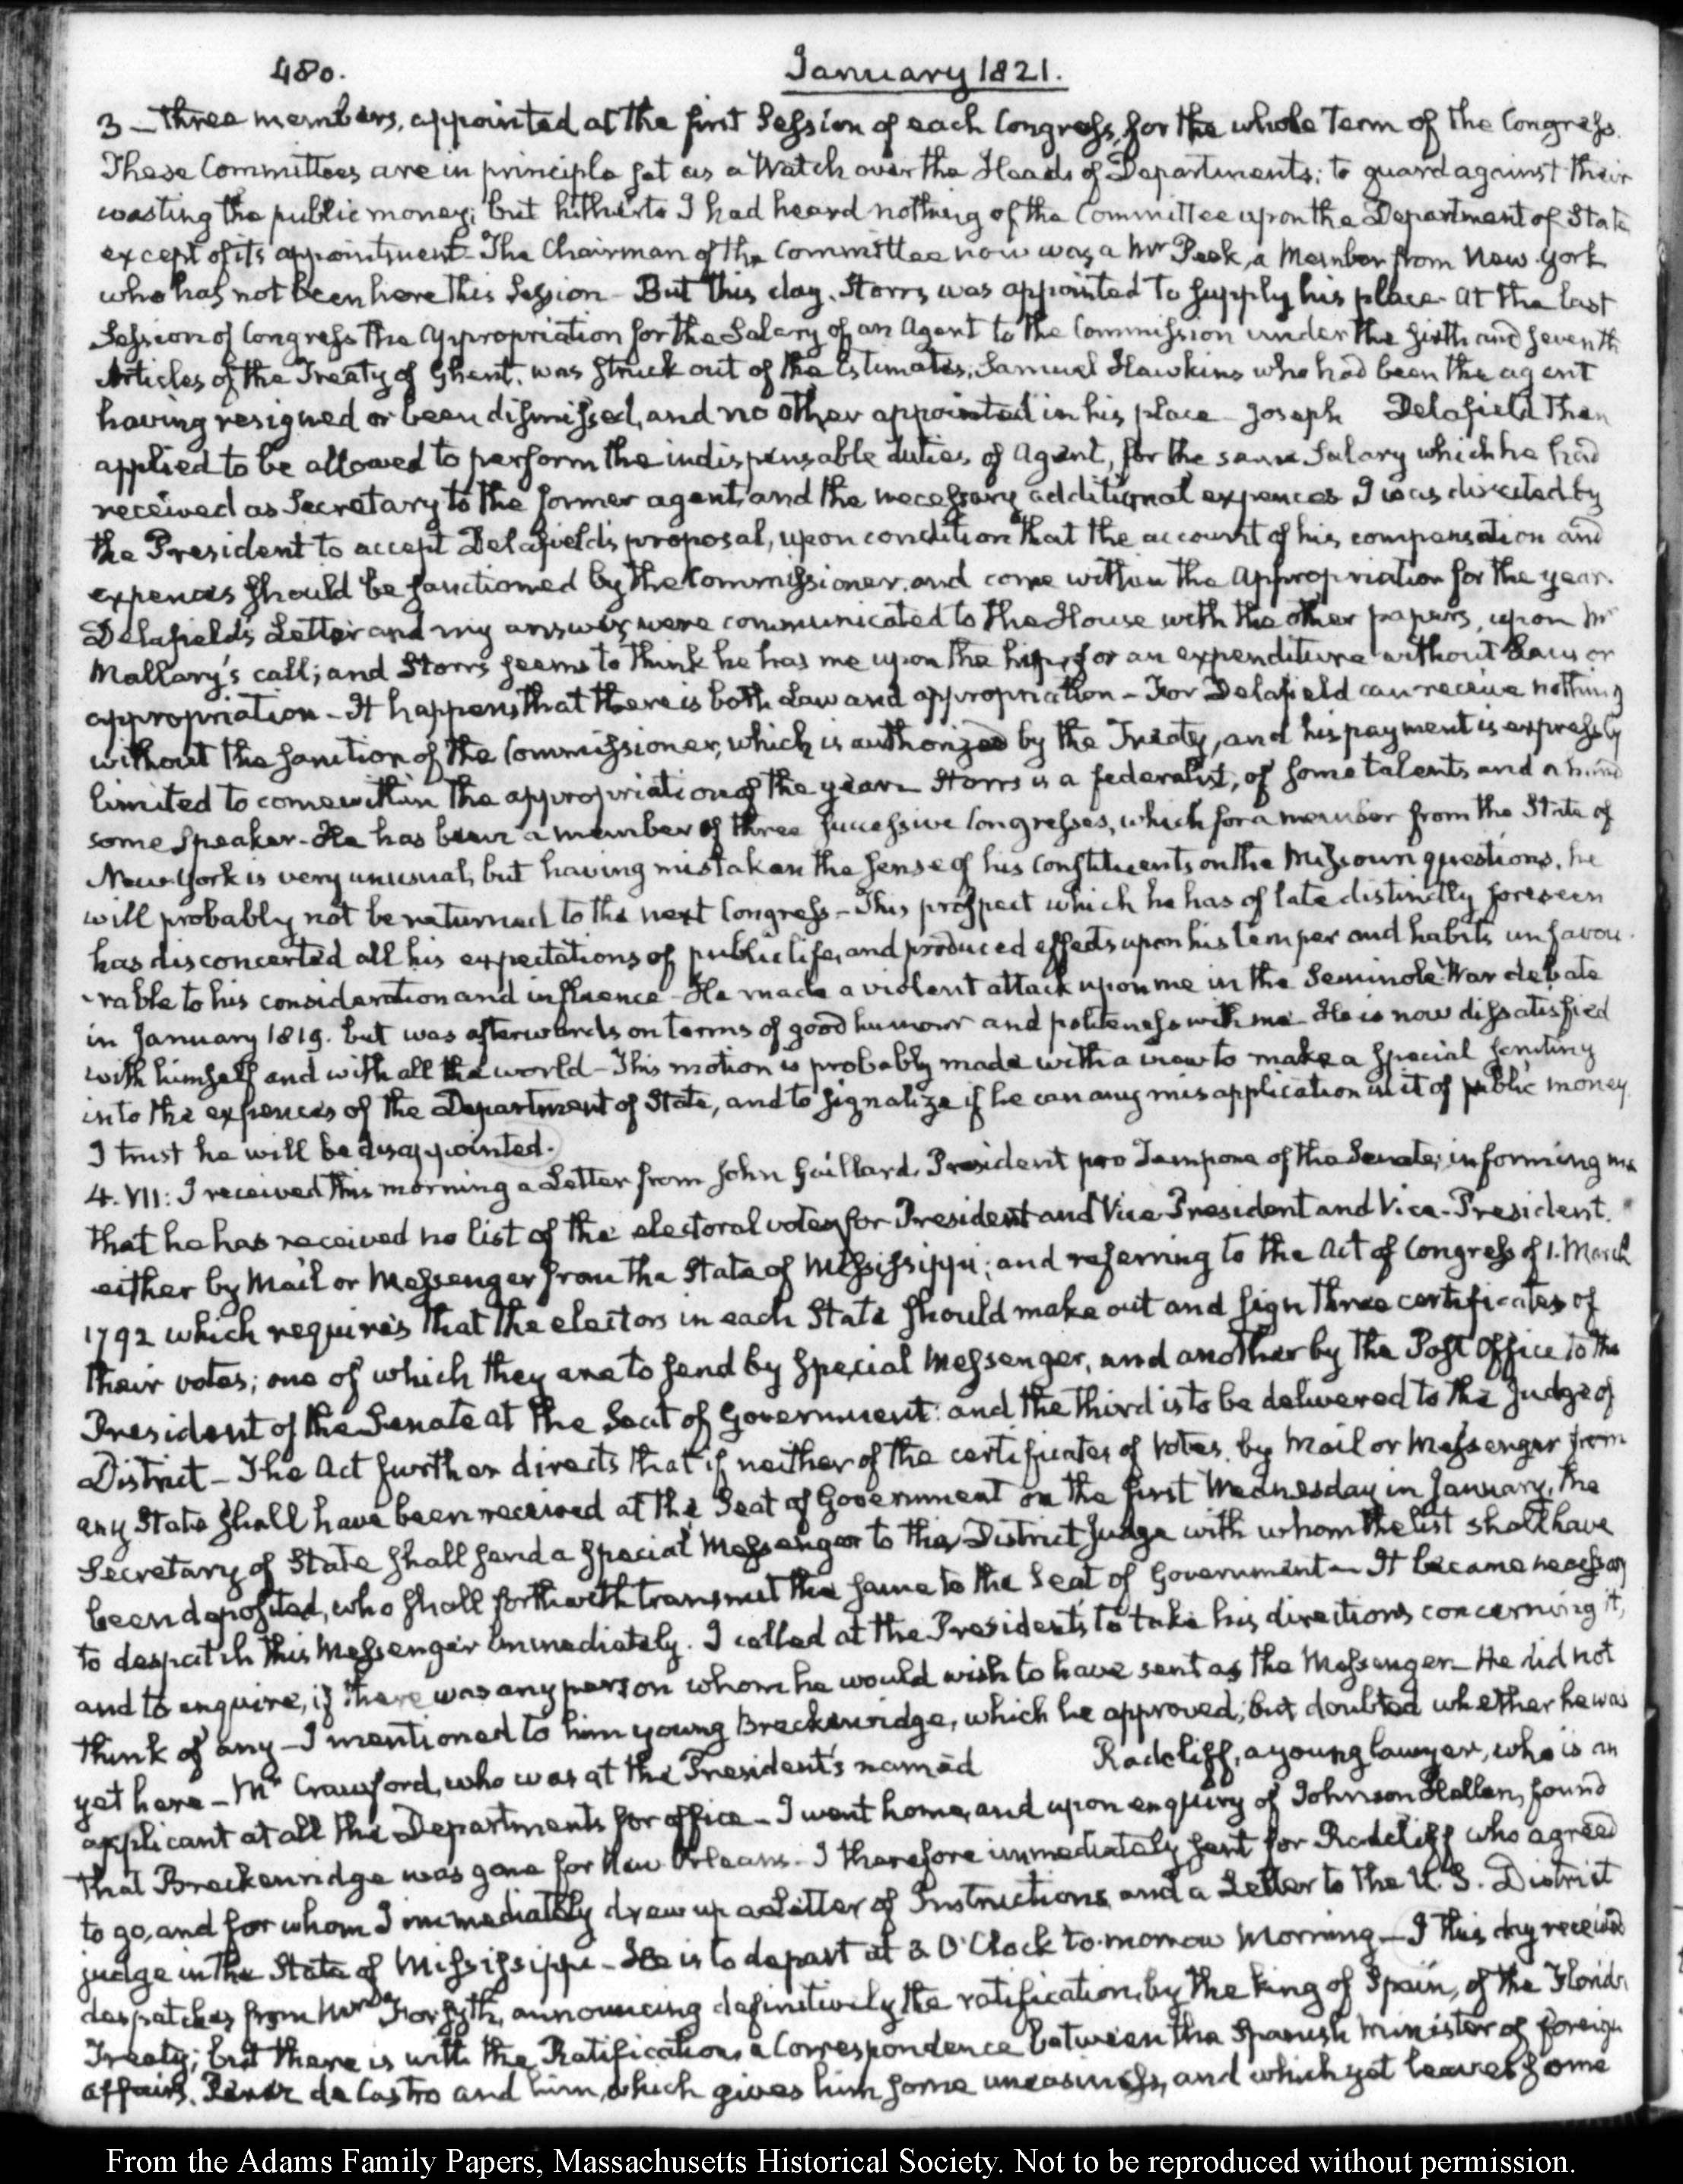 480.
January 1821.
3 — three members, appointed at the first Session of each Congress, for the whole Term of the Congress.
These Committees are in principle set as a Watch over the Heads of Departments; to guard against their
wasting the public money; but hitherto I had heard nothing of the Committee upon the Department of State
except of its appointment. The Chairman of the Committee now was a Mr Peek, a Member from New-York
who has not been here this Session — But this day, Storrs was appointed to supply his place. At the last
Session of Congress the Appropriation for the Salary of an Agent to the Commission under the sixth and seventh
Articles of the Treaty of Ghent, was struck out of the Estimates; Samuel Hawkins who had been the agent
having resigned or been dismissed, and no other appointed in his place — Joseph Delafield then
applied to be allowed to perform the indispensable duties of Agent, for the same Salary which he had
received as Secretary to the former agent, and the necessary additional expences I was directed by
the President to accept Delafield's proposal, upon condition that the account of his compensation and
expences should be sanctioned by the Commissioner, and come within the Appropriation for the year.
Delafield's Letter and my answer, were communicated to the House with the other papers, upon Mr
Mallary's call; and Storrs seems to think he has me upon the hip, for an expenditure without Law or
appropriation — It happens that there is both Law and appropriation — For Delafield can receive nothing
without the sanction of the Commissioner, which is authorized by the Treaty, and his payment is expressly
limited to come within the appropriation of the year — Storrs is a federalist, of some talents and a hand
some Speaker — He has been a member of three successive Congresses, which for a member from the State of
New-York is very unusual, but having mistaken the sense of his Constituents on the Missouri questions, he
will probably not be returned to the next Congress — This prospect which he has of late distinctly foreseen
has disconcerted all his expectations of public life, and produced effects upon his temper and habits unfavou-
-rable to his consideration and influence — He made a violent attack upon me in the Seminole War debate
in January 1819. but was afterwards on terms of good humour and politeness with me — He is now dissatisfied
with himself and with all the world — This motion is probably made with a view to make a special scrutiny
into the expences of the Department of State, and to signalize if he can any misapplication in it of public money.
I trust he will be disappointed.
4. VII: I received this morning a Letter from John Gaillard, President pro Tempore of the Senate; informing me
that he has received no list of the electoral votes, for President and Vice President and Vice-President.
either by Mail or Messenger from the State of Mississippi; and referring to the Act of Congress of 1. March
1792 which requires that the electors in each State should make out and sign three certificates of
their votes; one of which they are to send by special Messenger, and another by the Post Office to the
President of the Senate at the Seat of Government: and the third is to be delivered to the Judge of
District — The Act further directs that if neither of the certificates of votes, by Mail or Messenger from
any State shall have been received at the Seat of Government on the first Wednesday in January, the
Secretary of State shall send a special Messenger to the District Judge with whom the list shall have
been deposited, who shall forthwith transmit the same to the Seat of Government — It became necessary
to despatch this Messenger immediately. I called at the President's to take his directions concerning it,
and to enquire, if there was any person whom he would wish to have sent as the Messenger — He did not
think of any — I mentioned to him young Breckenridge, which he approved; but doubted whether he was
yet here — Mr Crawford, who was at the President's named Radcliff, a young lawyer, who is an
applicant at all the Departments for office — I went home, and upon enquiry of Johnson Hellen, found
that Breckenridge was gone for New Orleans — I therefore immediately sent for Radcliff who agreed
to go, and for whom I immediately drew up a Letter of Instructions, and a Letter to the U. S. District
judge in the State of Mississippi — He is to depart at 3 O'Clock to-morrow Morning — I this day received
despatches from Forsyth, announcing definitively the ratification, by the king of Spain, of the Florida
Treaty; but there is with the Ratification, a Correspondence between the Spanish Minister of foreign
affairs, Perez de Castro and him, which gives him some uneasiness, and which yet leaves some
From the Adams Family Papers, Massachusetts Historical Society. Not to be reproduced without permission.